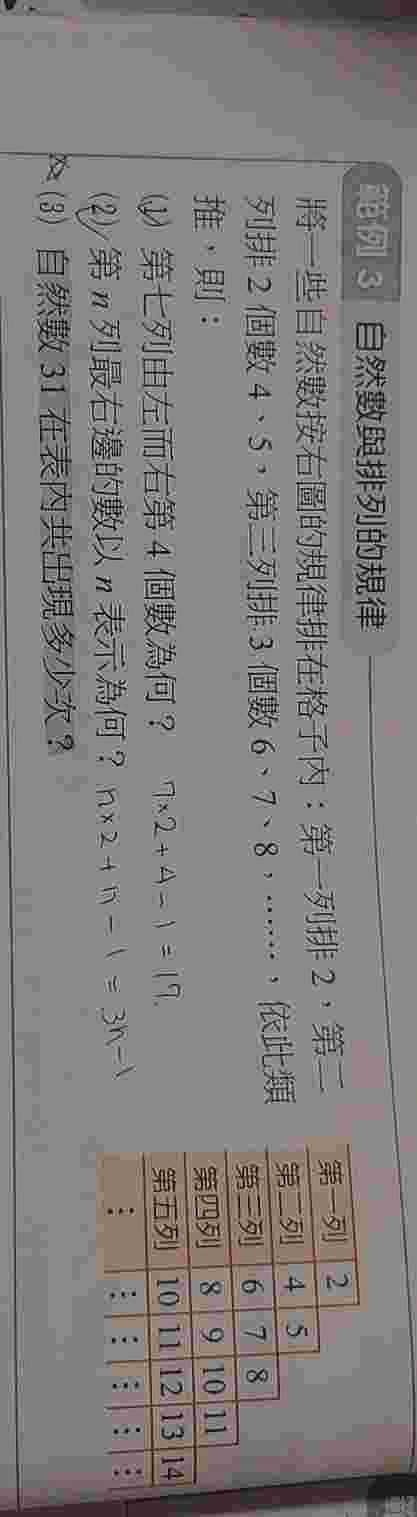 範例 3 自然數與排列的規律
將一些自然數按右圖的規律排在格子內：第一列排 2，第二
列排 2 個數 4、5，第三列排 3 個數 6、7、8，……，依此類
推，則：
(1) 第七列由左而右第 4 個數為何？ 7×2+4-1=17.
(2) 第 n 列最右邊的數以 n 表示為何？ n×2+n-1=3n-1
(3) 自然數 31 在表內共出現多少次？
第一列 2
第二列 4 5
第三列 6 7 8
第四列 8 9 10 11
第五列 10 11 12 13 14
⋮ ⋮ ⋮ ⋮ ⋮ ⋮